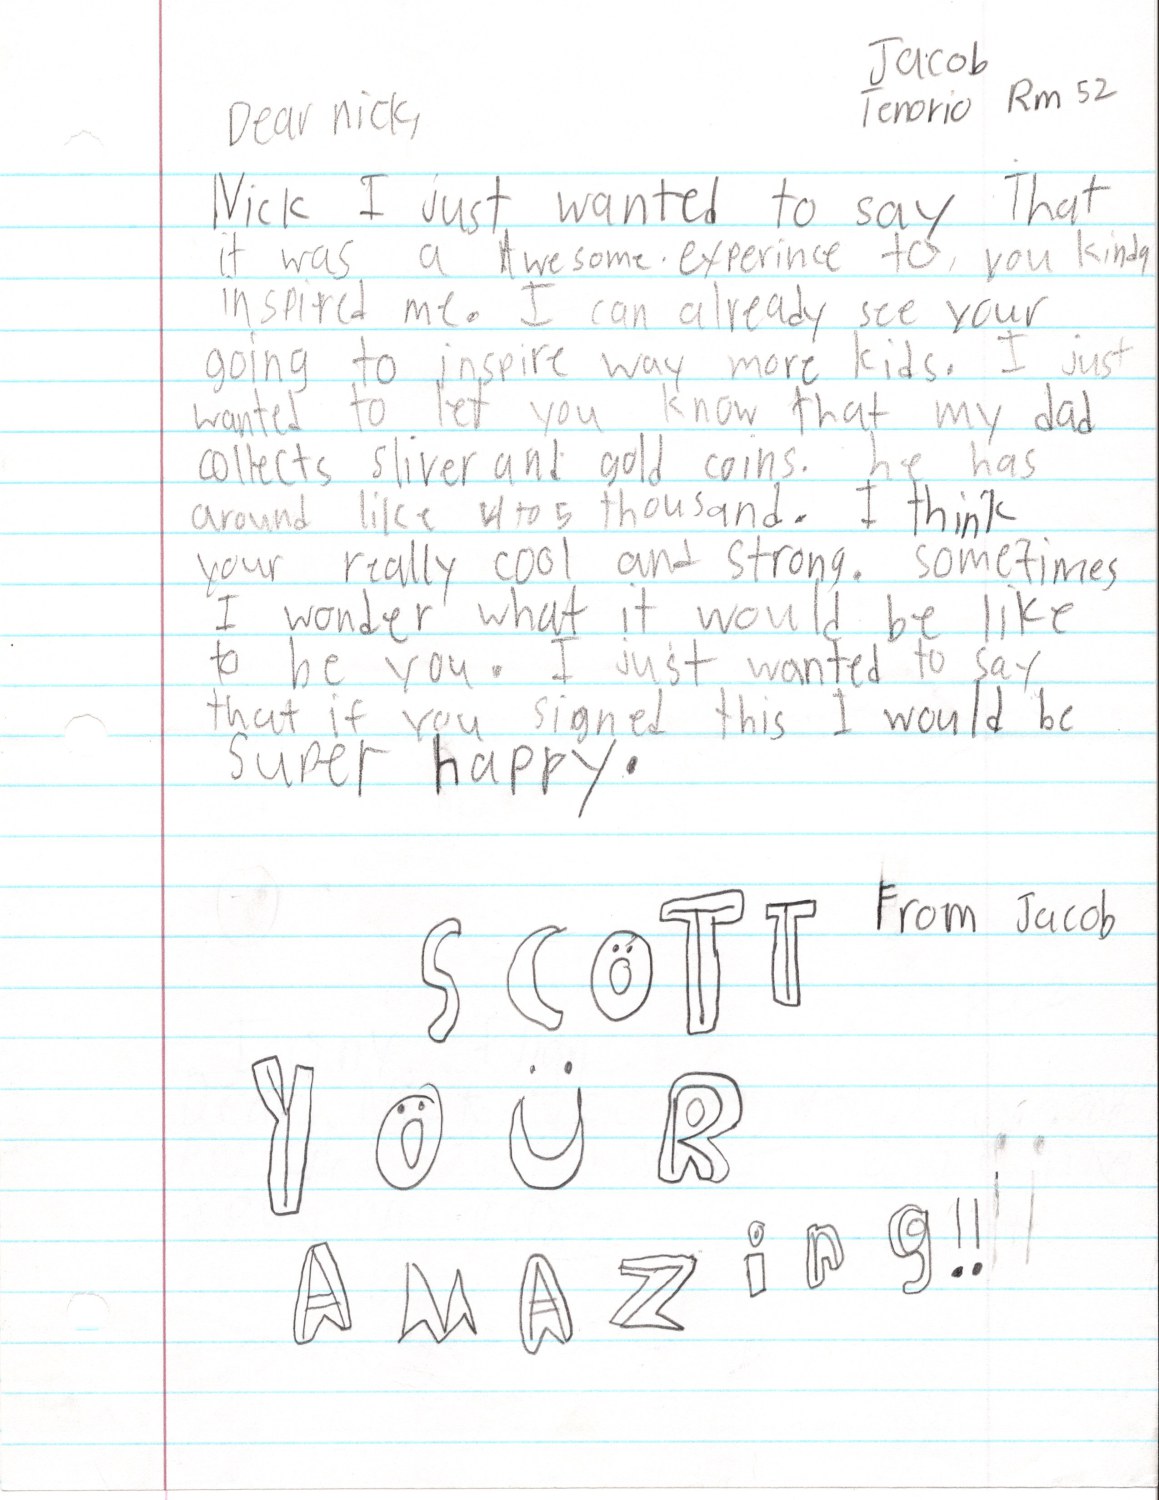 Jacob
Tenorio Rm 52
Dear nick,
Nick I just wanted to say That
it was a Awesome. experince to, you kinda
inspired me. I can already see your
going to inspire way more kids. I just
wanted to let you know that my dad
collects sliver and gold coins. he has
around like 4 to 5 thousand. I think
your really cool and strong. sometimes
I wonder what it would be like
to be you. I just wanted to say
that if you signed this I would be
super happy.
From Jacob
SCOTT
YOUR
AMAZing!!